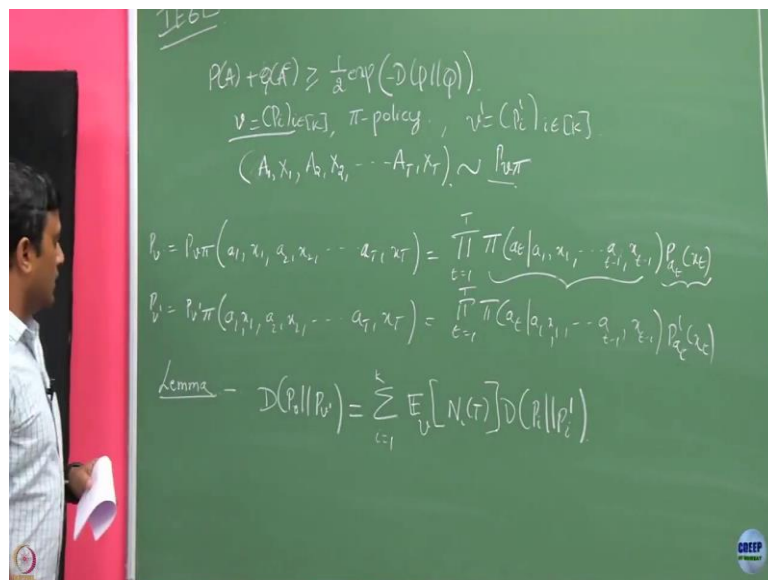 P(A) + Q(Aᶜ) ≥ 1/2 exp(-D(P||Q)).
ν = (Pᵢ)i∈[K], π-policy, ν' = (Pᵢ')i∈[K].
(A₁, X₁, A₂, X₂, ... A_T, X_T) ~ P_νπ
P_ν = P_νπ(a₁, x₁, a₂, x₂, ... a_T, x_T) = ∏_{t=1}^{T} π(a_t|a₁, x₁, ... a_{t-1}, x_{t-1}) P_{a_t}(x_t)
P_ν' = P_ν'π(a₁, x₁, a₂, x₂, ... a_T, x_T) = ∏_{t=1}^{T} π(a_t|a₁, x₁, ... a_{t-1}, x_{t-1}) P'_{a_t}(x_t)
Lemma - D(P_ν||P_ν') = ∑_{i=1}^{K} E_ν[N_i(T)] D(P_i||P_i').
CDEEP